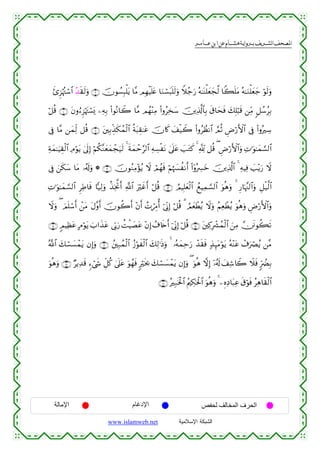 المصحف الشريف برواية هشام عن ابن عامر
وَلَوْ جَعَلْنَٰهُ مَلَكًا لَّجَعَلْنَٰهُ رَجُلًا وَلَلَبَسْنَا عَلَيْهِم مَّا يَلْبِسُونَ ۝ وَلَقَدُ ٱسْتُهْزِئَ
بِرُسُلٍ مِّن قَبْلِكَ فَحَاقَ بِٱلَّذِينَ سَخِرُوا۟ مِنْهُم مَّا كَانُوا۟ بِهِۦ يَسْتَهْزِءُونَ ۝ قُلْ
سِيرُوا۟ فِى ٱلْأَرْضِ ثُمَّ ٱنظُرُوا۟ كَيْفَ كَانَ عَٰقِبَةُ ٱلْمُكَذِّبِينَ ۝ قُل لِّمَن مَّا فِى
ٱلسَّمَٰوَٰتِ وَٱلْأَرْضِ ۖ قُل لِّلَّهِ ۚ كَتَبَ عَلَىٰ نَفْسِهِ ٱلرَّحْمَةَ ۚ لَيَجْمَعَنَّكُمْ إِلَىٰ يَوْمِ ٱلْقِيَٰمَةِ
لَا رَيْبَ فِيهِ ۚ ٱلَّذِينَ خَسِرُوٓا۟ أَنفُسَهُمْ فَهُمْ لَا يُؤْمِنُونَ ۝ وَلَهُۥ مَا سَكَنَ فِى
ٱلَّيْلِ وَٱلنَّهَارِ ۚ وَهُوَ ٱلسَّمِيعُ ٱلْعَلِيمُ ۝ قُلْ أَغَيْرَ ٱللَّهِ أَتَّخِذُ وَلِيًّا فَاطِرِ ٱلسَّمَٰوَٰتِ
وَٱلْأَرْضِ وَهُوَ يُطْعِمُ وَلَا يُطْعَمُ ۗ قُلْ إِنِّىٓ أُمِرْتُ أَنْ أَكُونَ أَوَّلَ مَنْ أَسْلَمَ ۖ وَلَا
تَكُونَنَّ مِنَ ٱلْمُشْرِكِينَ ۝ قُلْ إِنِّىٓ أَخَافُ إِنْ عَصَيْتُ رَبِّى عَذَابَ يَوْمٍ عَظِيمٍ ۝
مَّن يُصْرَفْ عَنْهُ يَوْمَئِذٍ فَقَدْ رَحِمَهُۥ ۚ وَذَٰلِكَ ٱلْفَوْزُ ٱلْمُبِينُ ۝ وَإِن يَمْسَسْكَ ٱللَّهُ
بِضُرٍّ فَلَا كَاشِفَ لَهُۥٓ إِلَّا هُوَ ۖ وَإِن يَمْسَسْكَ بِخَيْرٍ فَهُوَ عَلَىٰ كُلِّ شَىْءٍ قَدِيرٌ ۝ وَهُوَ
ٱلْقَاهِرُ فَوْقَ عِبَادِهِۦ ۚ وَهُوَ ٱلْحَكِيمُ ٱلْخَبِيرُ ۝
الحرف المخالف لحفص الإدغام الإمالة
الشبكة الإسلامية www.islamweb.net